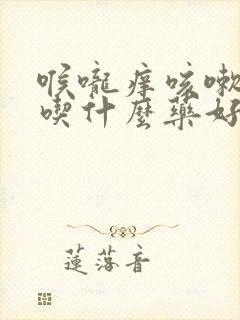 喉嚨痒咳嗽
喫什麼藥好
蓮落音